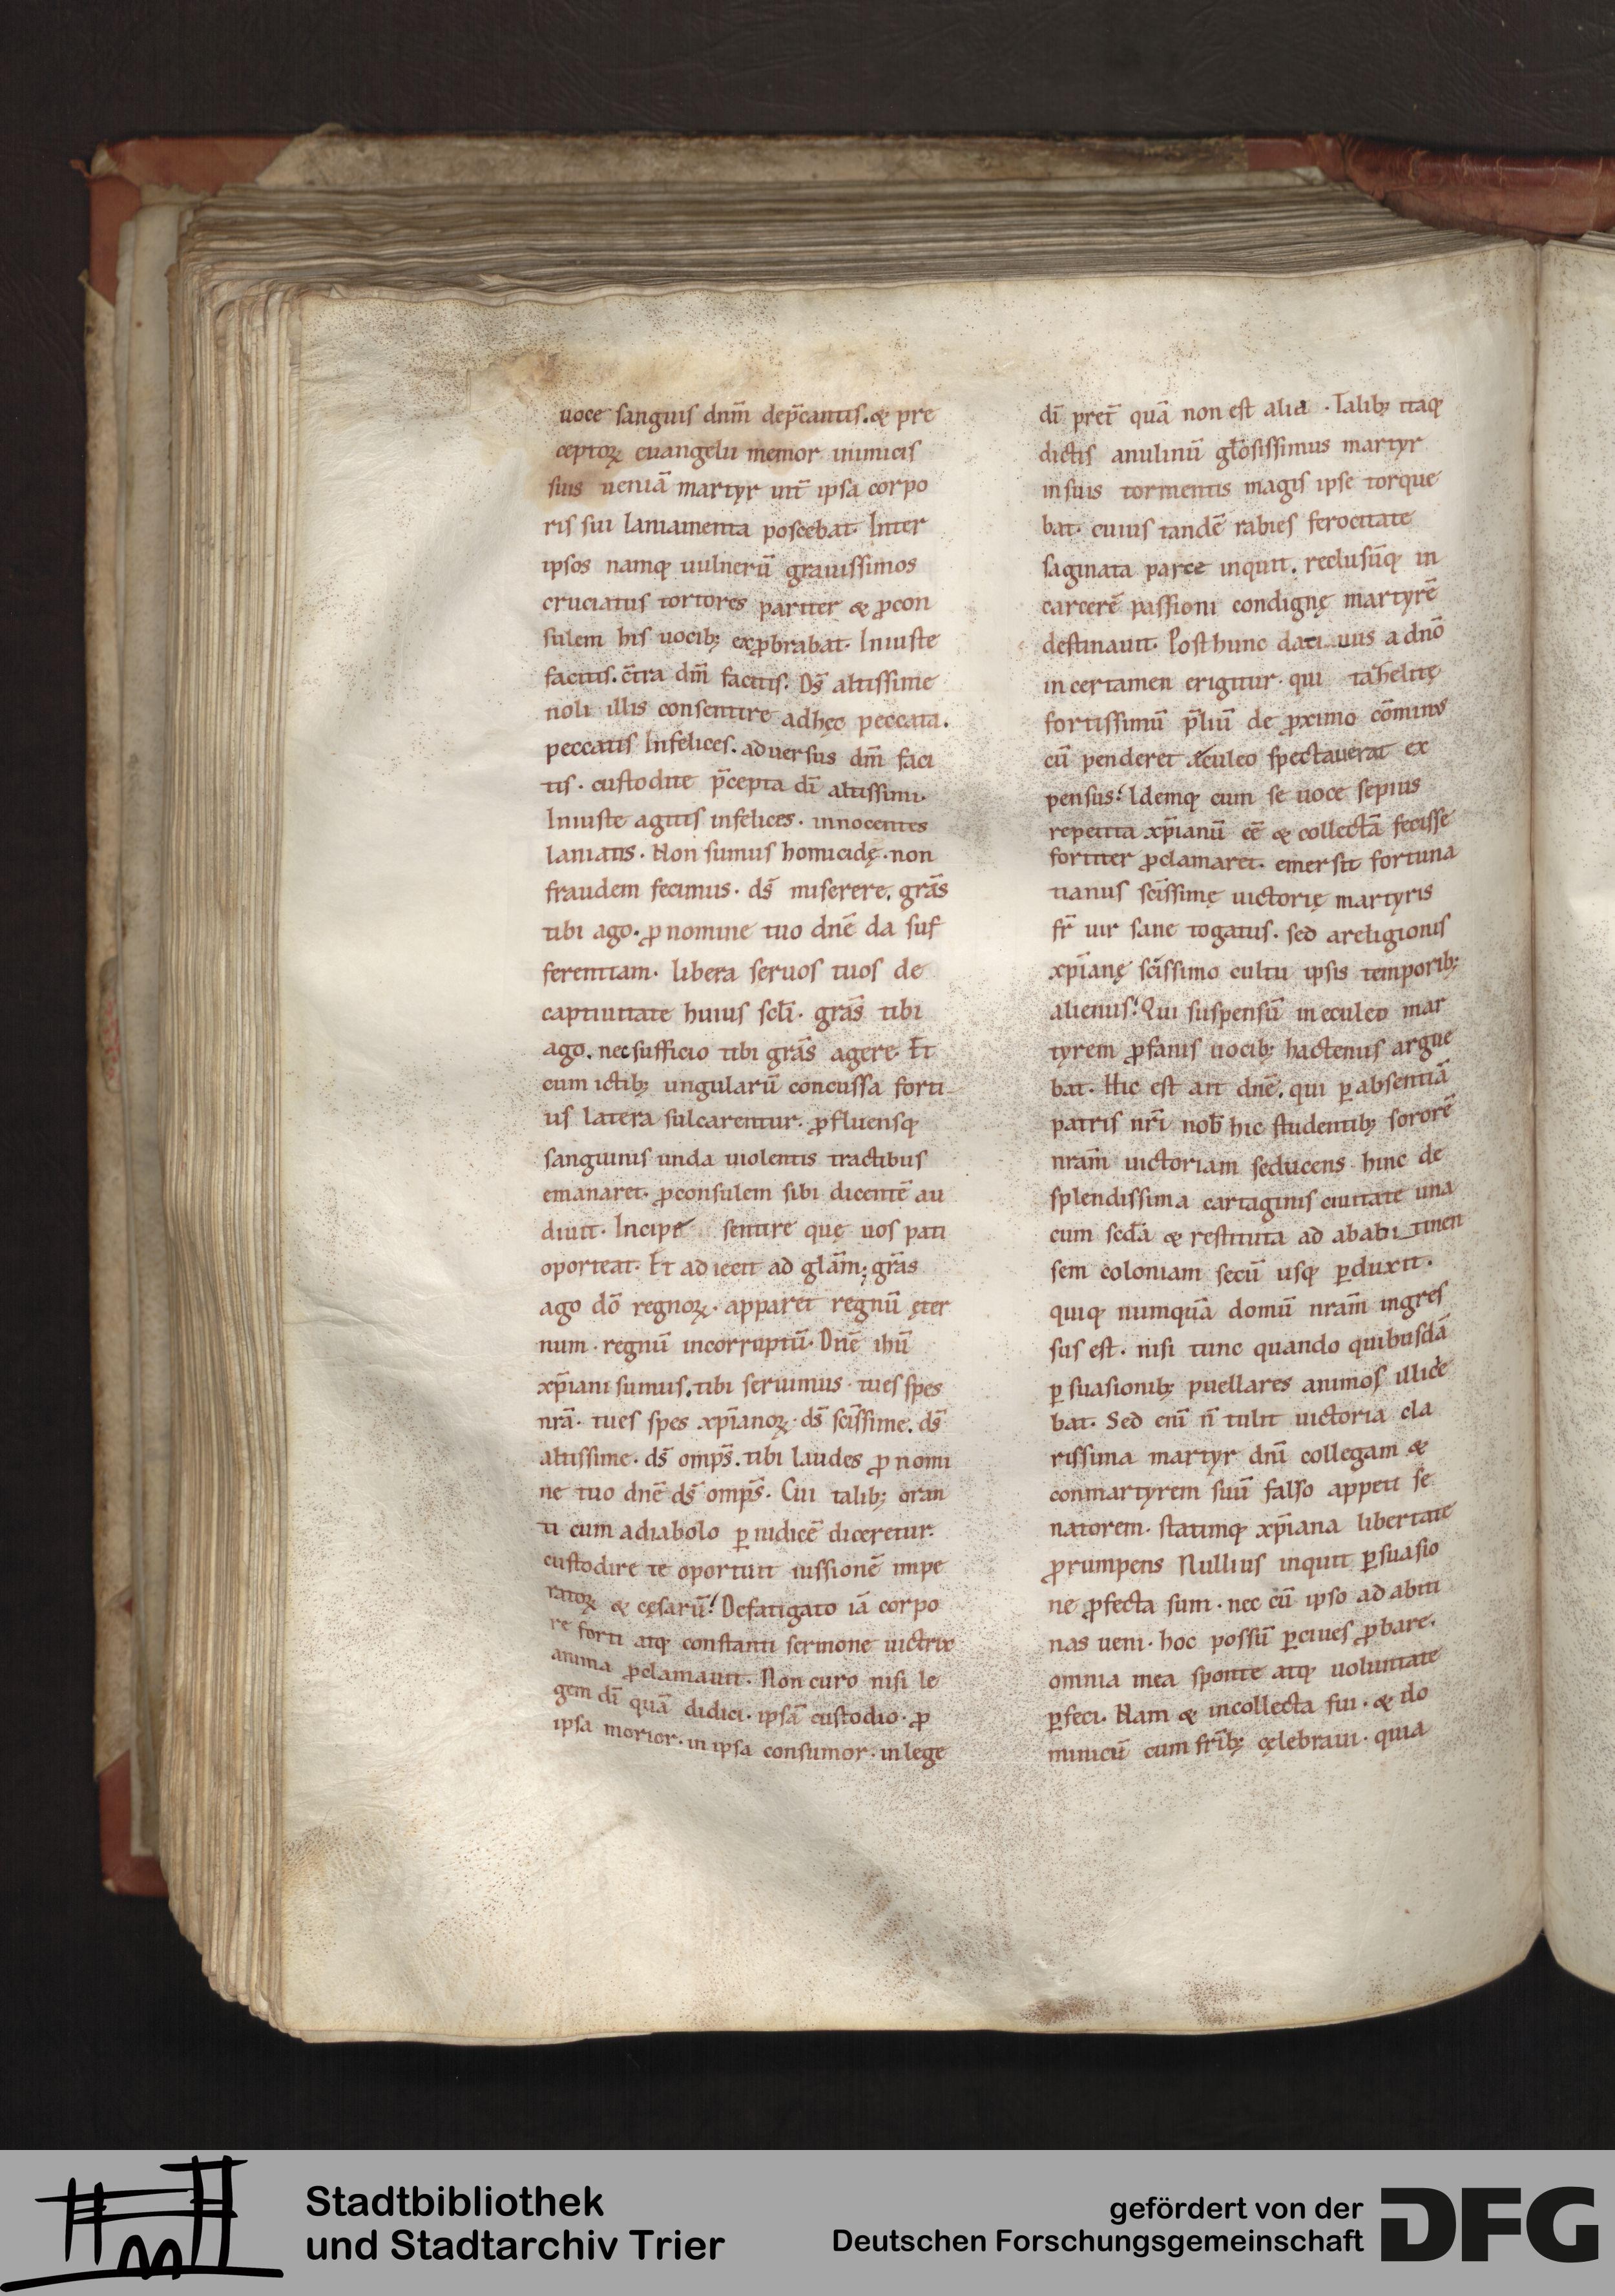 uoce sanguis dnm̄ dep̄cantis. & pre
ceptoꝝ euangelii memor inimicis
suis ueniā martyr int̄ ipsa corpo
ris sui laniamenta poscebat. Inter
ipsos namq; uulnerū grauissimos
cruciatus tortores pariter & ꝓcon
sulem his uocib; exꝓbrabat. Iniuste
facitis. c̄tra dm̄ facitis. Ds̄ altissime
noli illis consentire adhęc peccata.
peccatis Infelices. aduersus dm̄ faci
tis. custodite p̄cepta dī altissimi.
Iniuste agitis infelices. innocentes
laniatis. Non sumus homicidę. non
fraudem fecimus. ds̄ miserere. grās
tibi ago. ꝓ nomine tuo dnē da suf
ferentiam. libera seruos tuos de
captiuitate huius scl̄i. grās tibi
ago. nec sufficio tibi grās agere. Et
cum ictib; ungularū concussa forti
us latera sulcarentur. ꝓfluensq;
sanguinis unda uiolentis tractibus
emanaret. ꝓconsulem sibi dicentē au
diuit. Incipe sentire quę uos pati
oporteat. Et adiecit ad glām; grās
ago dō regnoꝝ. apparet regnū ęter
num. regnū incorruptū. Dnē ihū
xp̄iani sumus. tibi seruimus. tu es spes
nrā. tu es spes xp̄ianoꝝ. ds̄ scīssime. ds̄
altissime. ds̄ omps̄. tibi laudes ꝓ nomi
ne tuo dnē ds̄ omps̄. Cui talib; oran
ti cum a diabolo ꝑ iudicē diceretur.
custodire te oportuit iussionē impe
ratoꝝ & cęsarū! Defatigato iā corpo
re forti atq; constanti sermone uictrix
anima ꝓclamauit. Non curo nisi le
gem dī quā didici. ipsā custodio. ꝓ
ipsa morior. in ipsa consumor. in lege
dī pret̄ quā non est alia. Talib; itaq;
dictis anulinū gl̄osissimus martyr
in suis tormentis magis ipse torque
bat. cuius tandē rabies ferocitate
saginata parce inquit. reclusūq; in
carcerē passioni condignę martyrē
destinauit. Post hunc dati uus a dnō
in certamen erigitur. qui tahelitę
fortissimū p̄liū de ꝓximo cōminus
cū penderet ęculeo spectauerat ex
pensus! Idemq; cum se uoce sepius
repetita xp̄ianū eē & collectā fecisse
fortiter ꝓclamaret. emersit fortuna
tianus scīssimę uictorię martyris
fr̄ uir sane togatus. sed a religionis
xp̄ianę scīssimo cultu ipsis temporib;
alienus! Qui suspensū in eculeo mar
tyrem ꝓfanis uocib; hactenus argue
bat. Hic est ait dnē. qui ꝑ absentiā
patris nrī nob̄ hic studentib; sororē
nram̄ uictoriam seducens hinc de
splendissima cartaginis ciuitate una
cum scd̄a & restituta ad abati tinen
sem coloniam secū usq; ꝑduxit.
quiq; numquā domū nram̄ ingres
sus est. nisi tunc quando quibusdā
ꝑsuasionib; puellares animos illice
bat. Sed enī n̄ tulit uictoria cla
rissima martyr dnī collegam &
conmartyrem suū falso appeti se
natorem. statimq; xp̄iana libertate
ꝓrumpens Nullius inquit ꝑsuasio
ne ꝓfecta sum. nec cū ipso ad abiti
nas ueni. hoc possū ꝑ ciues ꝓbare.
omnia mea sponte atq; uoluntate
ꝑfeci. Nam & in collecta fui. & do
minicū cum frīb; cęlebraui. quia
Stadtbibliothek
und Stadtarchiv Trier
gefördert von der
Deutschen Forschungsgemeinschaft
DFG